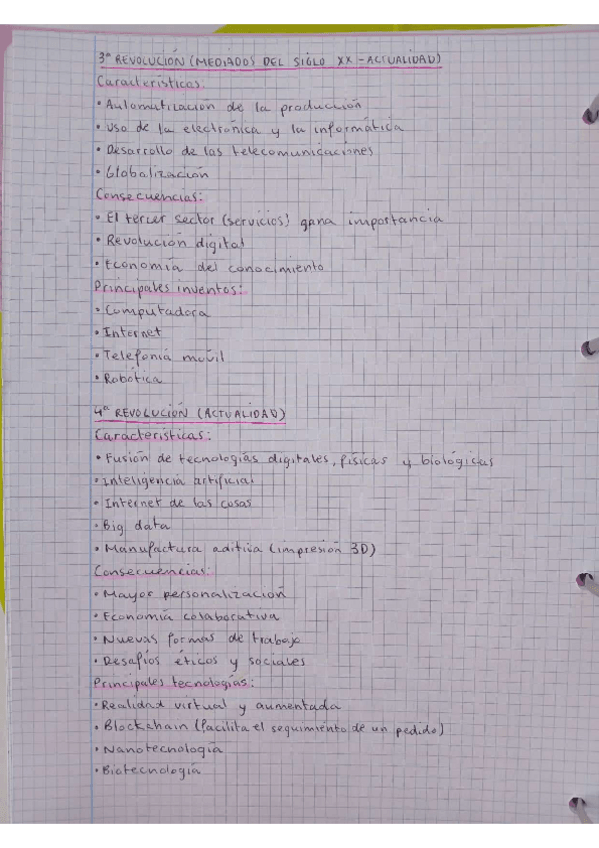 3ª REVOLUCIÓN (MEDIADOS DEL SIGLO XX - ACTUALIDAD)
Características:
• Automatización de la producción
• Uso de la electrónica y la informática
• Desarrollo de las telecomunicaciones
• Globalización
Consecuencias:
• El tercer sector (servicios) gana importancia
• Revolución digital
• Economía del conocimiento
Principales inventos:
• Computadora
• Internet
• Telefonía movil
• Robótica
4ª REVOLUCIÓN (ACTUALIDAD)
Características:
• Fusión de tecnologías digitales, físicas y biológicas
• Inteligencia artificial
• Internet de las cosas
• Big data
• Manufactura aditiva (impresión 3D)
Consecuencias:
• Mayor personalización
• Economía colaborativa
• Nuevas formas de trabajo
• Desafíos éticos y sociales
Principales tecnologías:
• Realidad virtual y aumentada
• Blockchain (facilita el seguimiento de un pedido)
• Nanotecnología
• Biotecnología